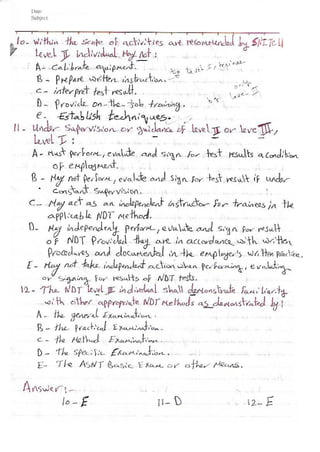 Date:
Subject:
10- Within the scope of activities are recommended by SNTTC-1A
Level II Individual May Act:
A- Calibrate equipment.
B- Prepare written instruction.
C- interpret test result.
D- Provide on-the-job training.
E- Establish techniques.
11- Under Supervision or guidance of level II or leve III,
Level I:
A- Must perform, evaluate and sign for test results a condition
of employment.
B- May not perform, evaluate and sign for test result if under
constant supervision.
C- May act as an independent instructor for trainees in the
applicable NDT Method.
D- May independently perform, evaluate and sign for result
of NDT Provided they are in accordance with written
Procedures and documented in the employer's written practice.
E- May not take independent action when performing, evaluating
or signing for results of NDT tests.
12- The NDT level III individual shall demonstrate familiarity
with other appropriate NDT Methods as demonstrated by:
A- the general Examination.
B- the Practical Examination.
C- the Method Examination.
D- the Specific Examination.
E- The ASNT Basic Exam or other Means.
Answer:-
10-E 11-D 12-E